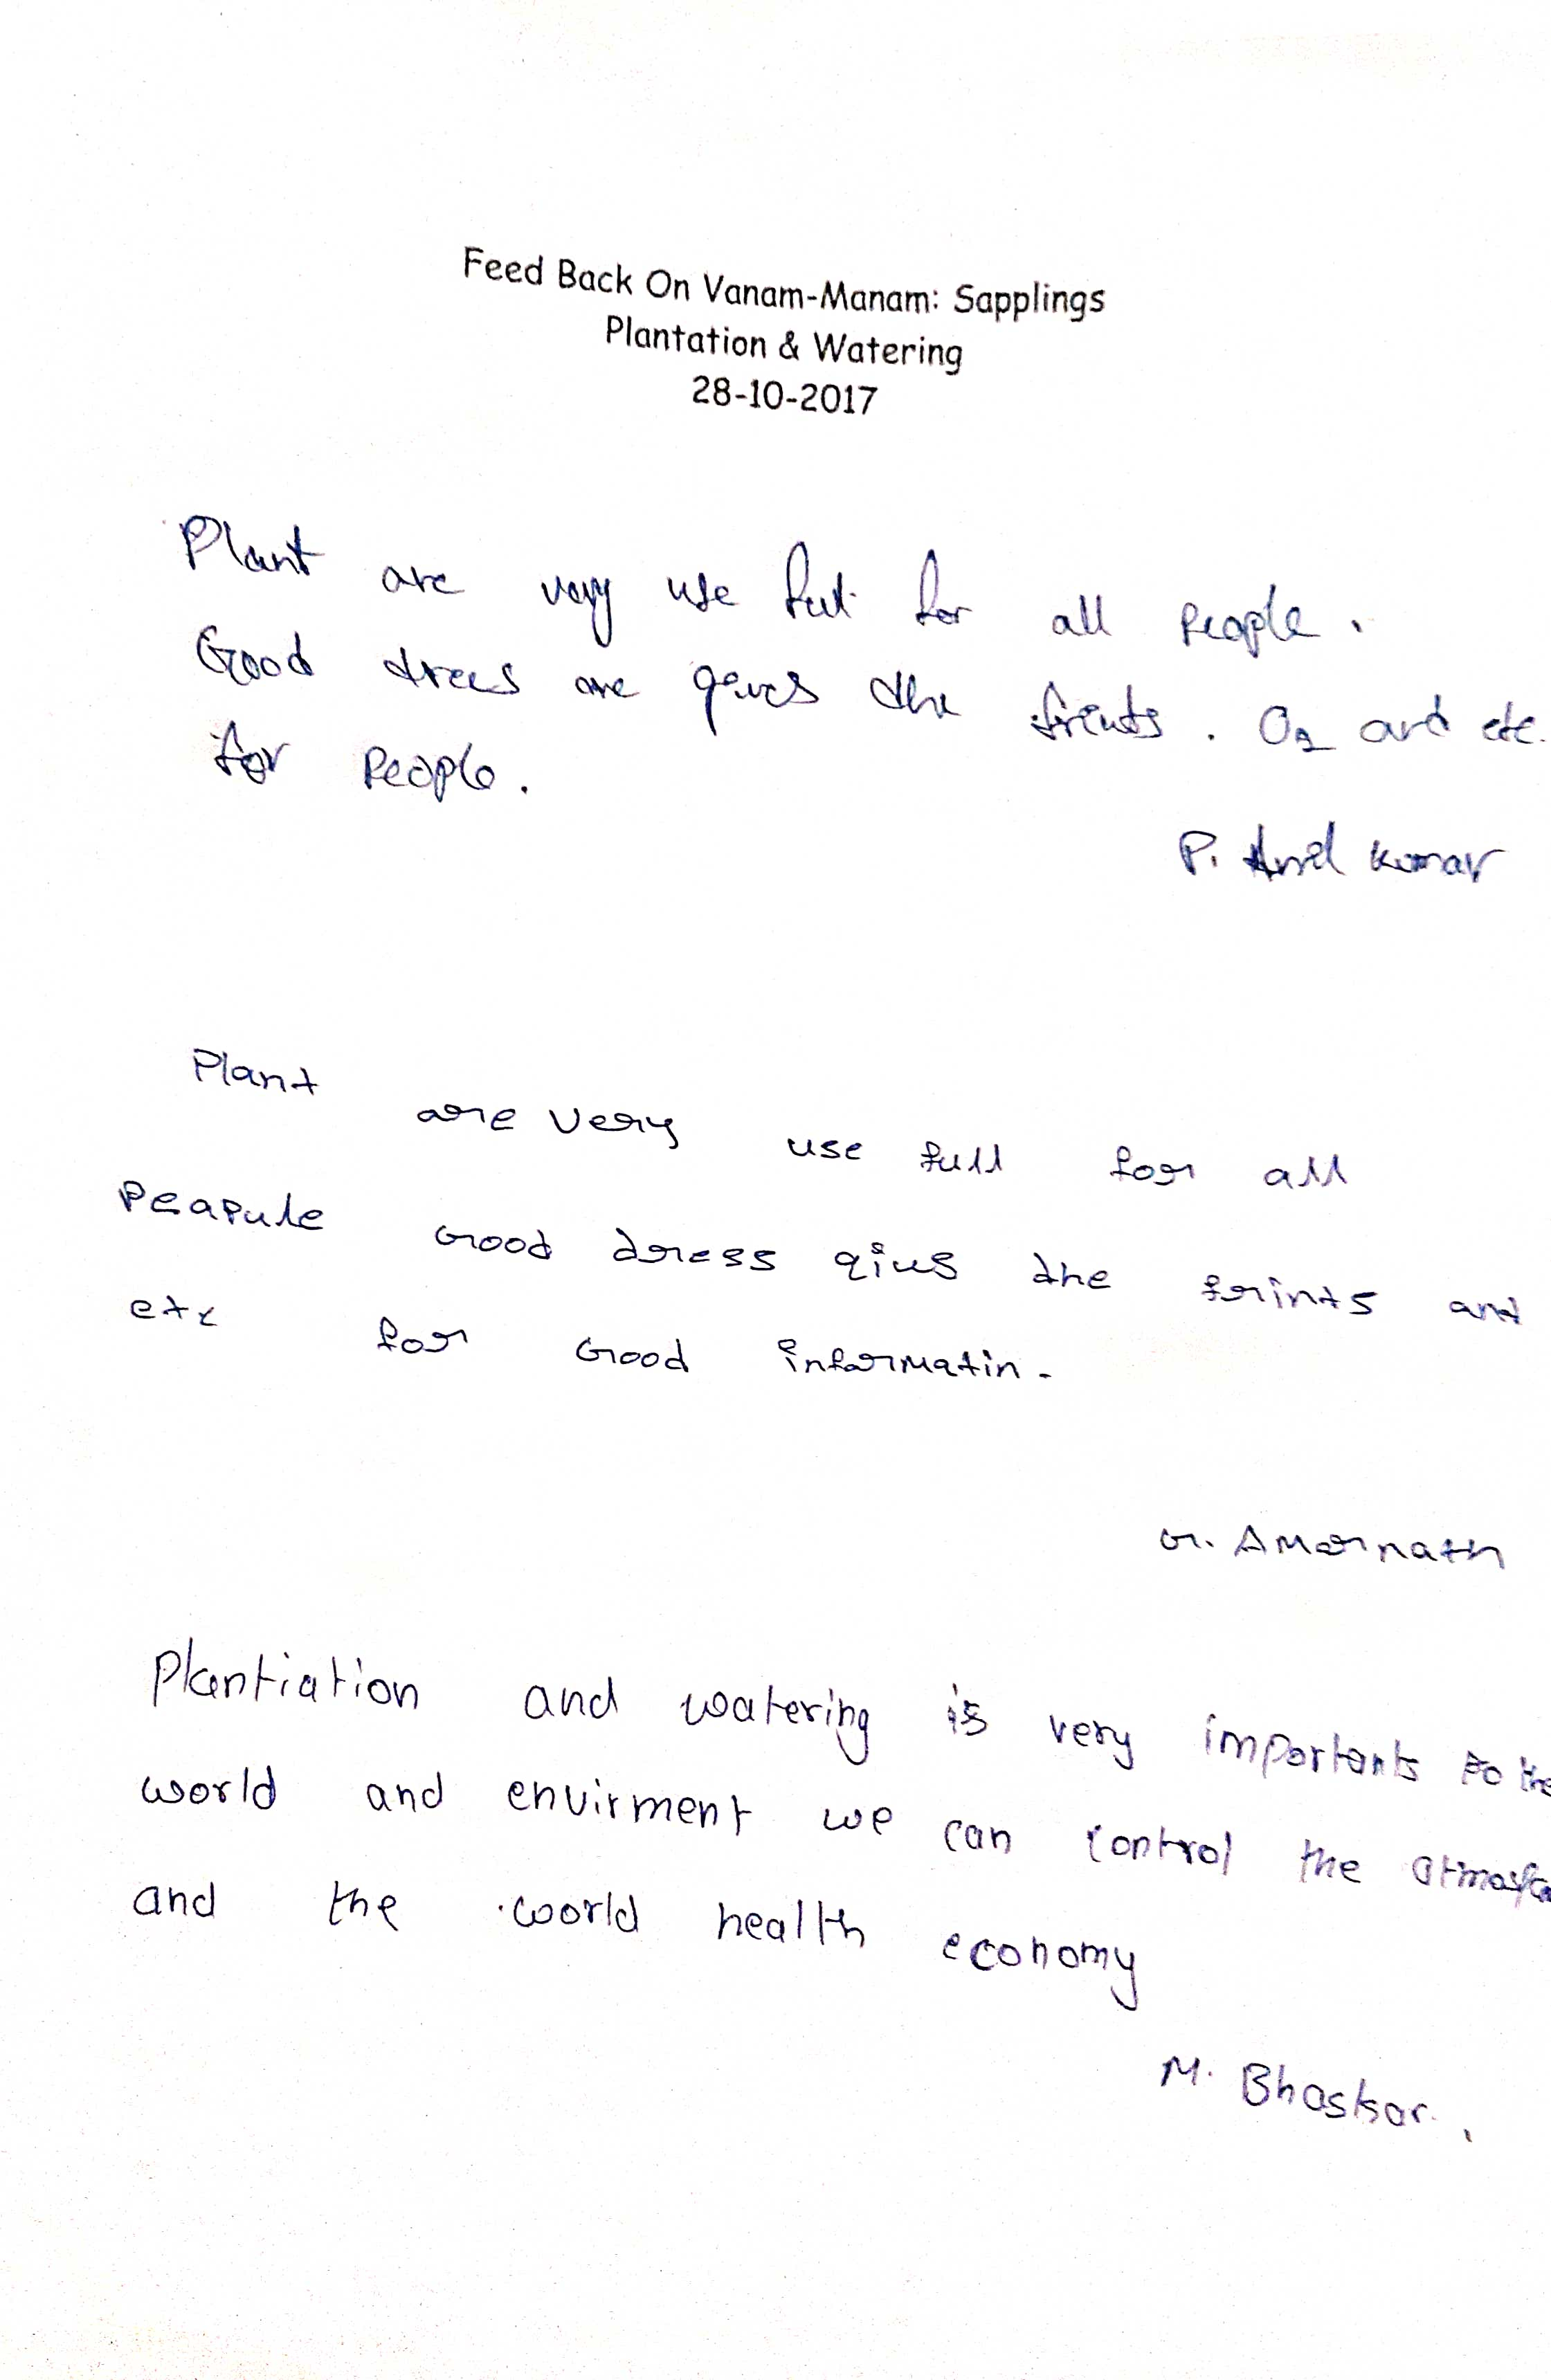 Feed Back On Vanam-Manam: Sapplings
Plantation & Watering
28-10-2017
Plant are very use ful for all people.
Good trees are gives the friuts. O2 and etc.
for People.
P. Anil kumar
Plant are very use full for all
Peapule Good dress gius the frints and
etc for Good informatin.
G. Amarnath
Plantiation and watering is very importants to the
world and envirment we can control the
and the world health economy
M. Bhaskar.